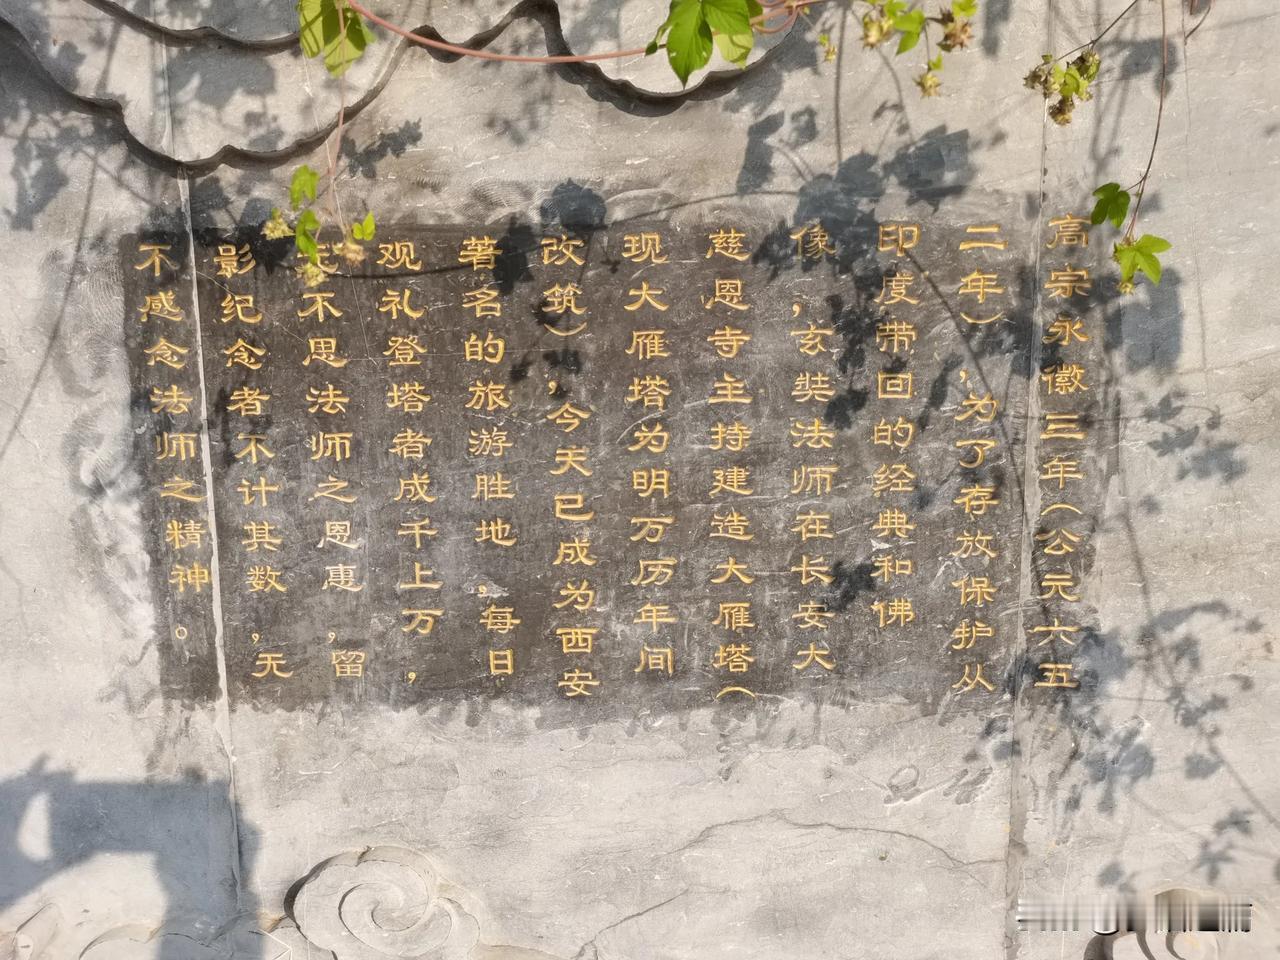 高宗永徽三年（公元六五
二年），为了存放保护从
印度带回的经典和佛
像，玄奘法师在长安大
慈恩寺主持建造大雁塔（
现大雁塔为明万历年间
改筑），今天已成为西安
著名的旅游胜地，每日
观礼登塔者成千上万，
不思法师之恩惠，留
影纪念者不计其数，无
不感念法师之精神。